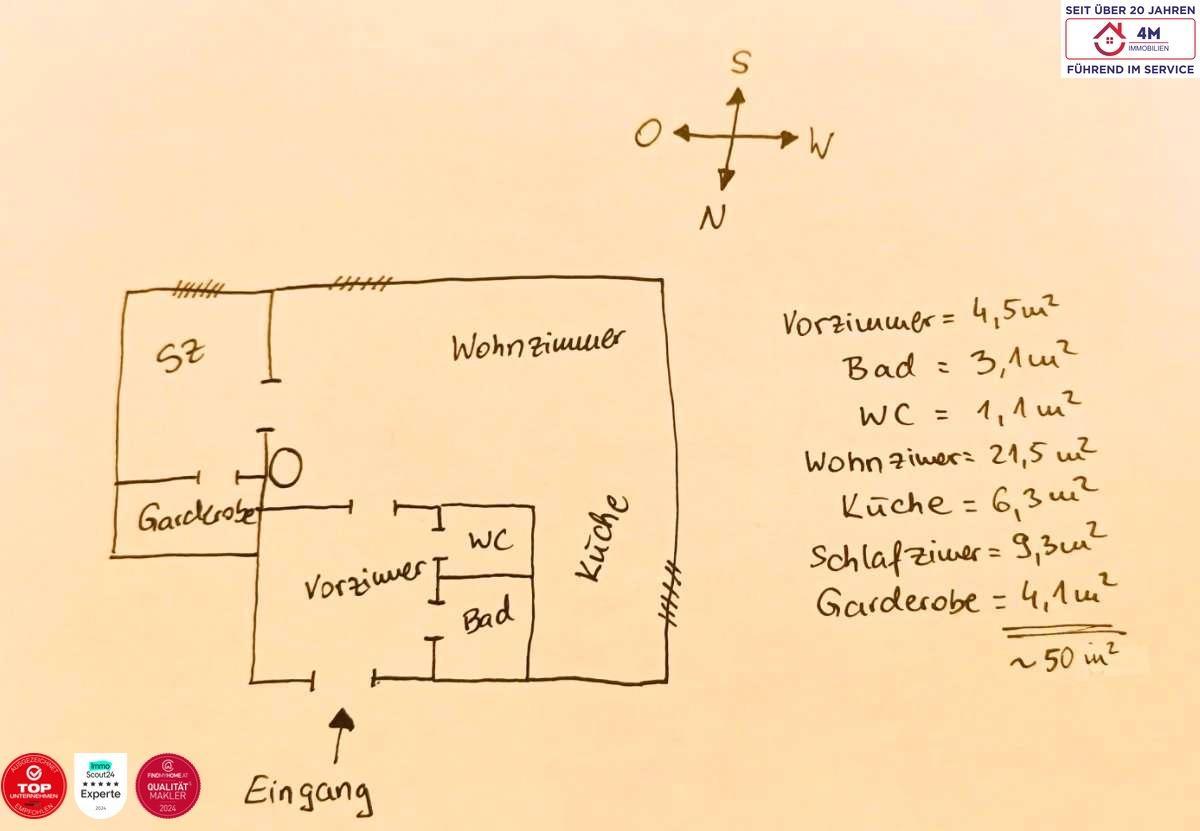 SEIT ÜBER 20 JAHREN
4M
IMMOBILIEN
FÜHREND IM SERVICE
S
O
W
N
SZ
Wohnzimmer
Garderobe
WC
Vorzimmer
Bad
Küche
Eingang
Vorzimmer = 4,5m²
Bad = 3,1m²
WC = 1,1m²
Wohnzimer = 21,5 m²
Küche = 6,3m²
Schlafzimer = 9,3m²
Garderobe = 4,1m²
~50 m²
AUSGEZEICHNET
TOP
UNTERNEHMEN
EMPFOHLEN
Immo
Scout24
★★★★★
Experte
2024
FINDMYHOME.AT
QUALITÄTS
MAKLER
2024